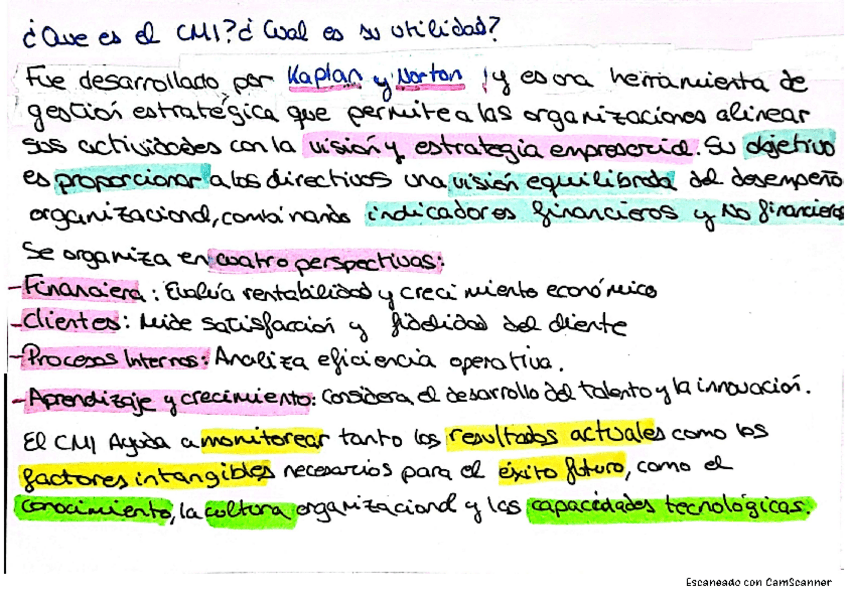 ¿Que es el CMI? ¿Cual es su utilidad?
Fue desarrollado por Kaplan y Norton, y es una herramienta de
gestión estratégica que permite a las organizaciones alinear
sus actividades con la visión y estrategia empresarial. Su objetivo
es proporcionar a los directivos una visión equilibrada del desempeño
organizacional, combinando indicadores financieros y No financieros
Se organiza en cuatro perspectivas:
-Financiera: Evalúa rentabilidad y crecimiento económico
-Clientes: Mide satisfacción y fidelidad del cliente
-Procesos Internos: Analiza eficiencia operativa.
-Aprendizaje y crecimiento: Considera el desarrollo del talento y la innovación.
El CMI Ayuda a monitorear tanto los resultados actuales como los
factores intangibles necesarios para el éxito futuro, como el
conocimiento, la cultura organizacional y las capacidades tecnológicas.
Escaneado con CamScanner